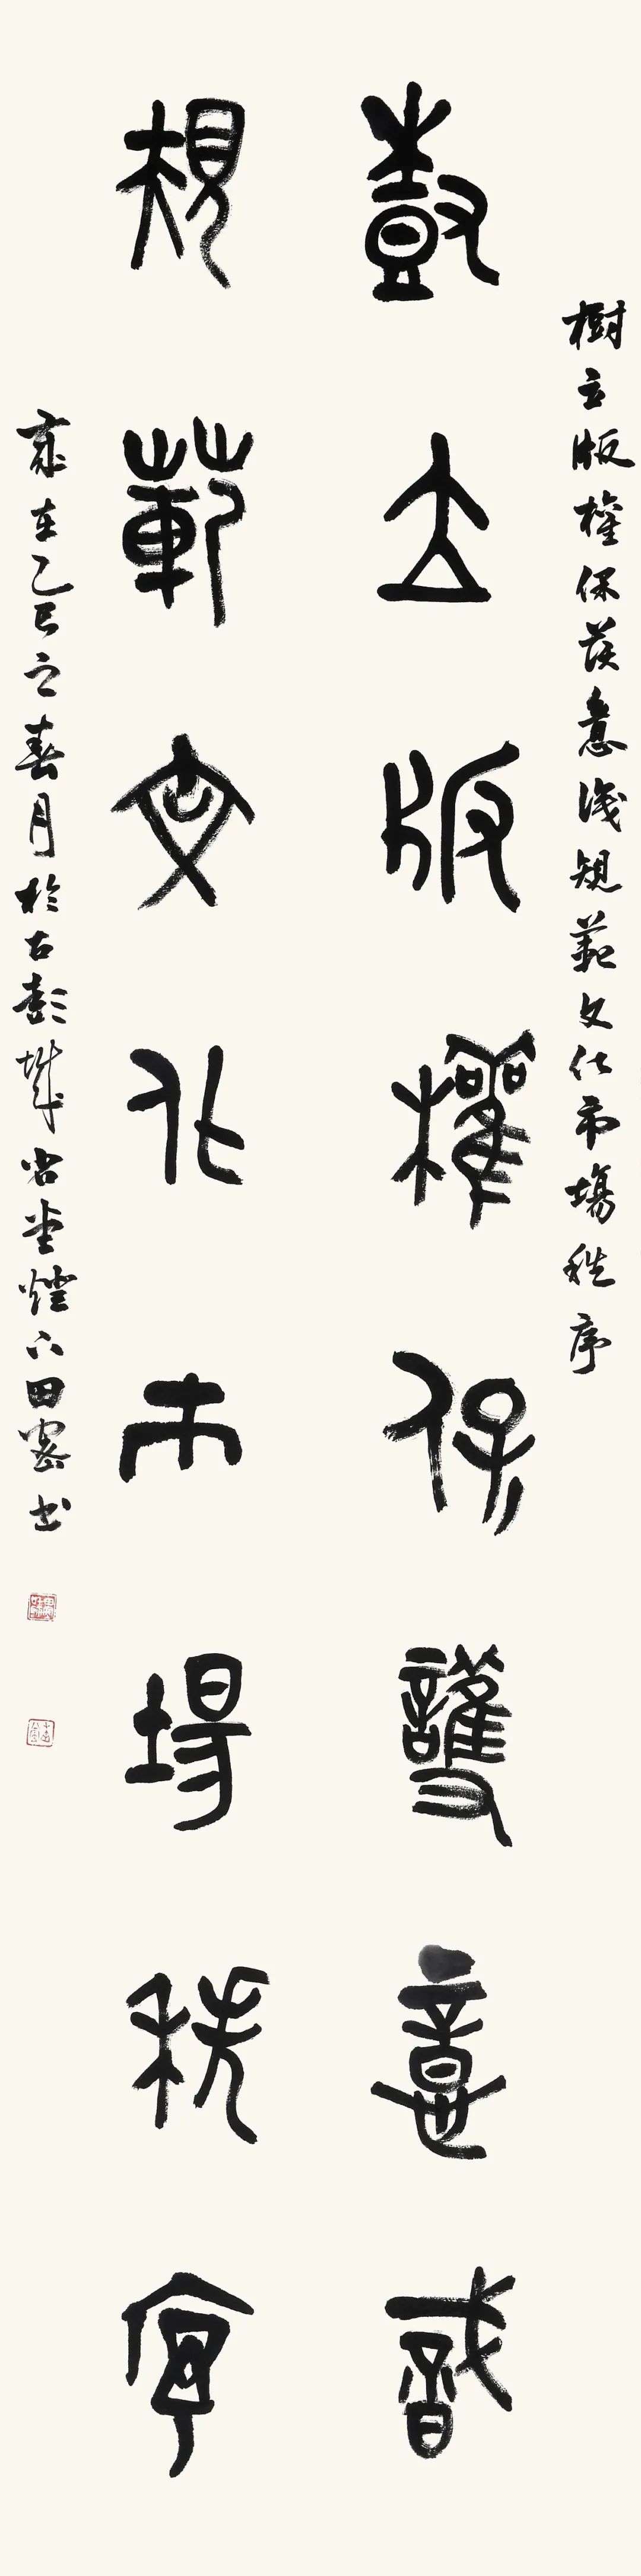 樹立版權保護意識規範文化市場秩序
尌立版權保護意識
規範文化市場秩序
歲在乙巳之春月於古彭城
堂燈下田書